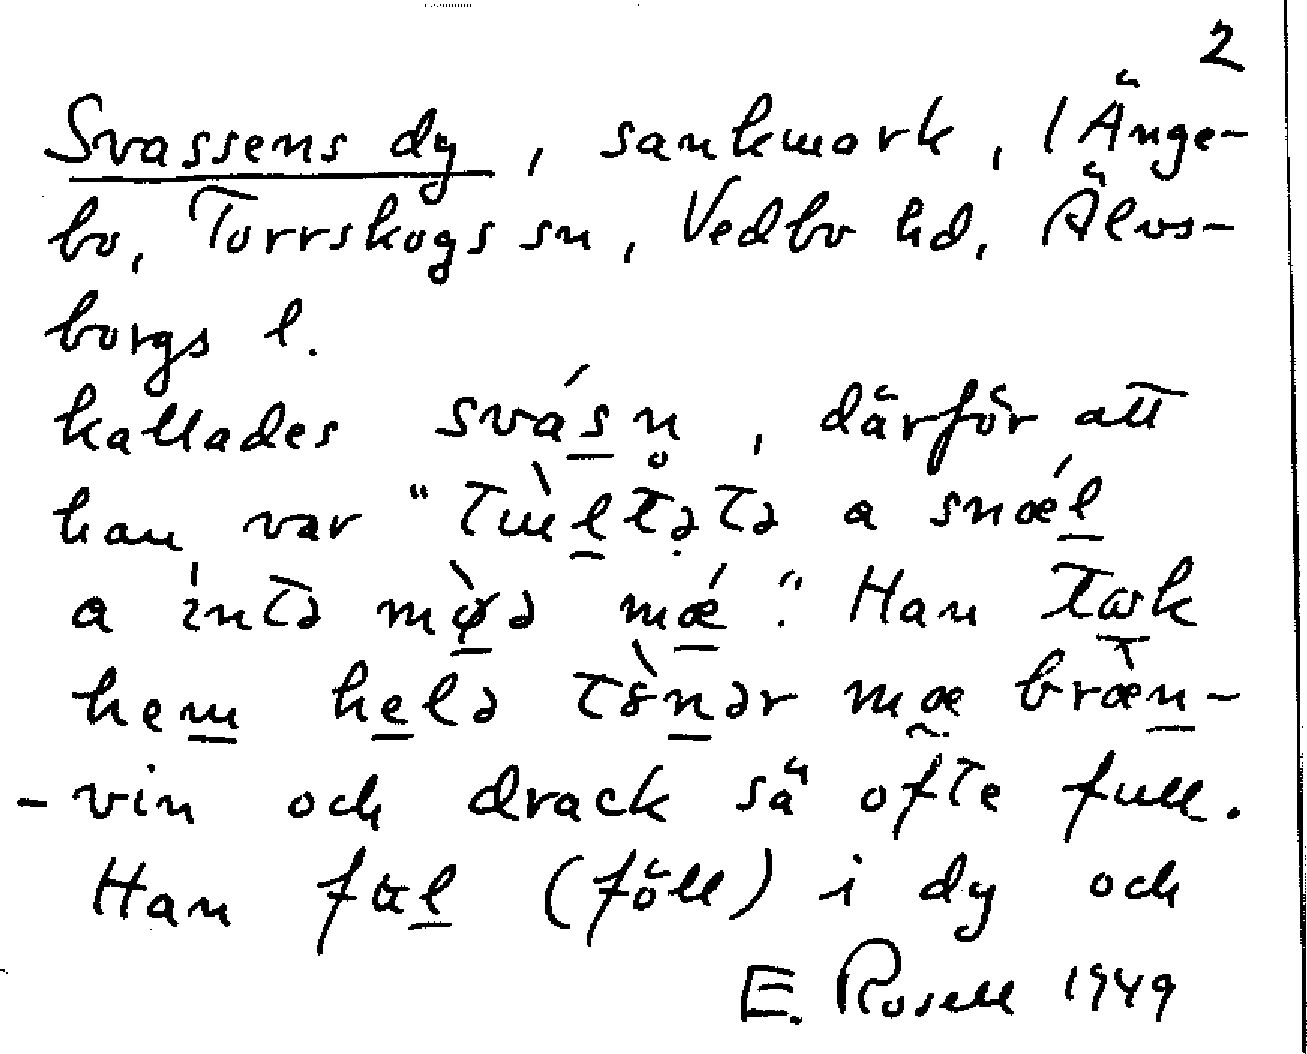 2
Svassens dy, sankmark, i Änge-
bo, Torrskogs sn, Vedbo hd, Älvs-
borgs l.
kallades svás̲n̥, därför att
han var "
a snǽl̲
a intə mø̲̀ə mǽ̲". Han
hem̲ he̲lə mæ bræ̀n̲-
-vin och drack så ofte full.
Han (föll) i dy och
E. Rosell 1949